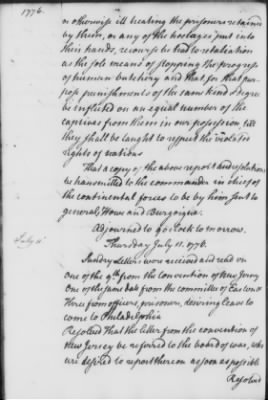 1776.
or otherwise ill treating the prisoners retained
by them, or any of the hostages put into
their hands, recourse be had to retaliation
as the sole means of stopping the progress
of human butchery and that for that pur-
pose punishments of the same kind & degree
be inflicted on an equal number of the
captives from them in our possession till
they shall be taught to respect the violated
rights of nations
That a copy of the above report and resolutions
be transmitted to the commander in chief of
the continental forces to be by him sent to
generals Howe and Burgoigne.
Adjourned to 9 oClock to morrow.
July 11.
Thursday July 11. 1776.
Sundry Letters were received and read viz
One of the 9th from the convention of New Jersey
One of the same date from the committee of Easton &
Three from officers, prisoners, desiring leave to
come to Philadelphia
Resolved That the letter from the convention of
New Jersey be referred to the board of war, who
are desired to report thereon as soon as possible
Resolved